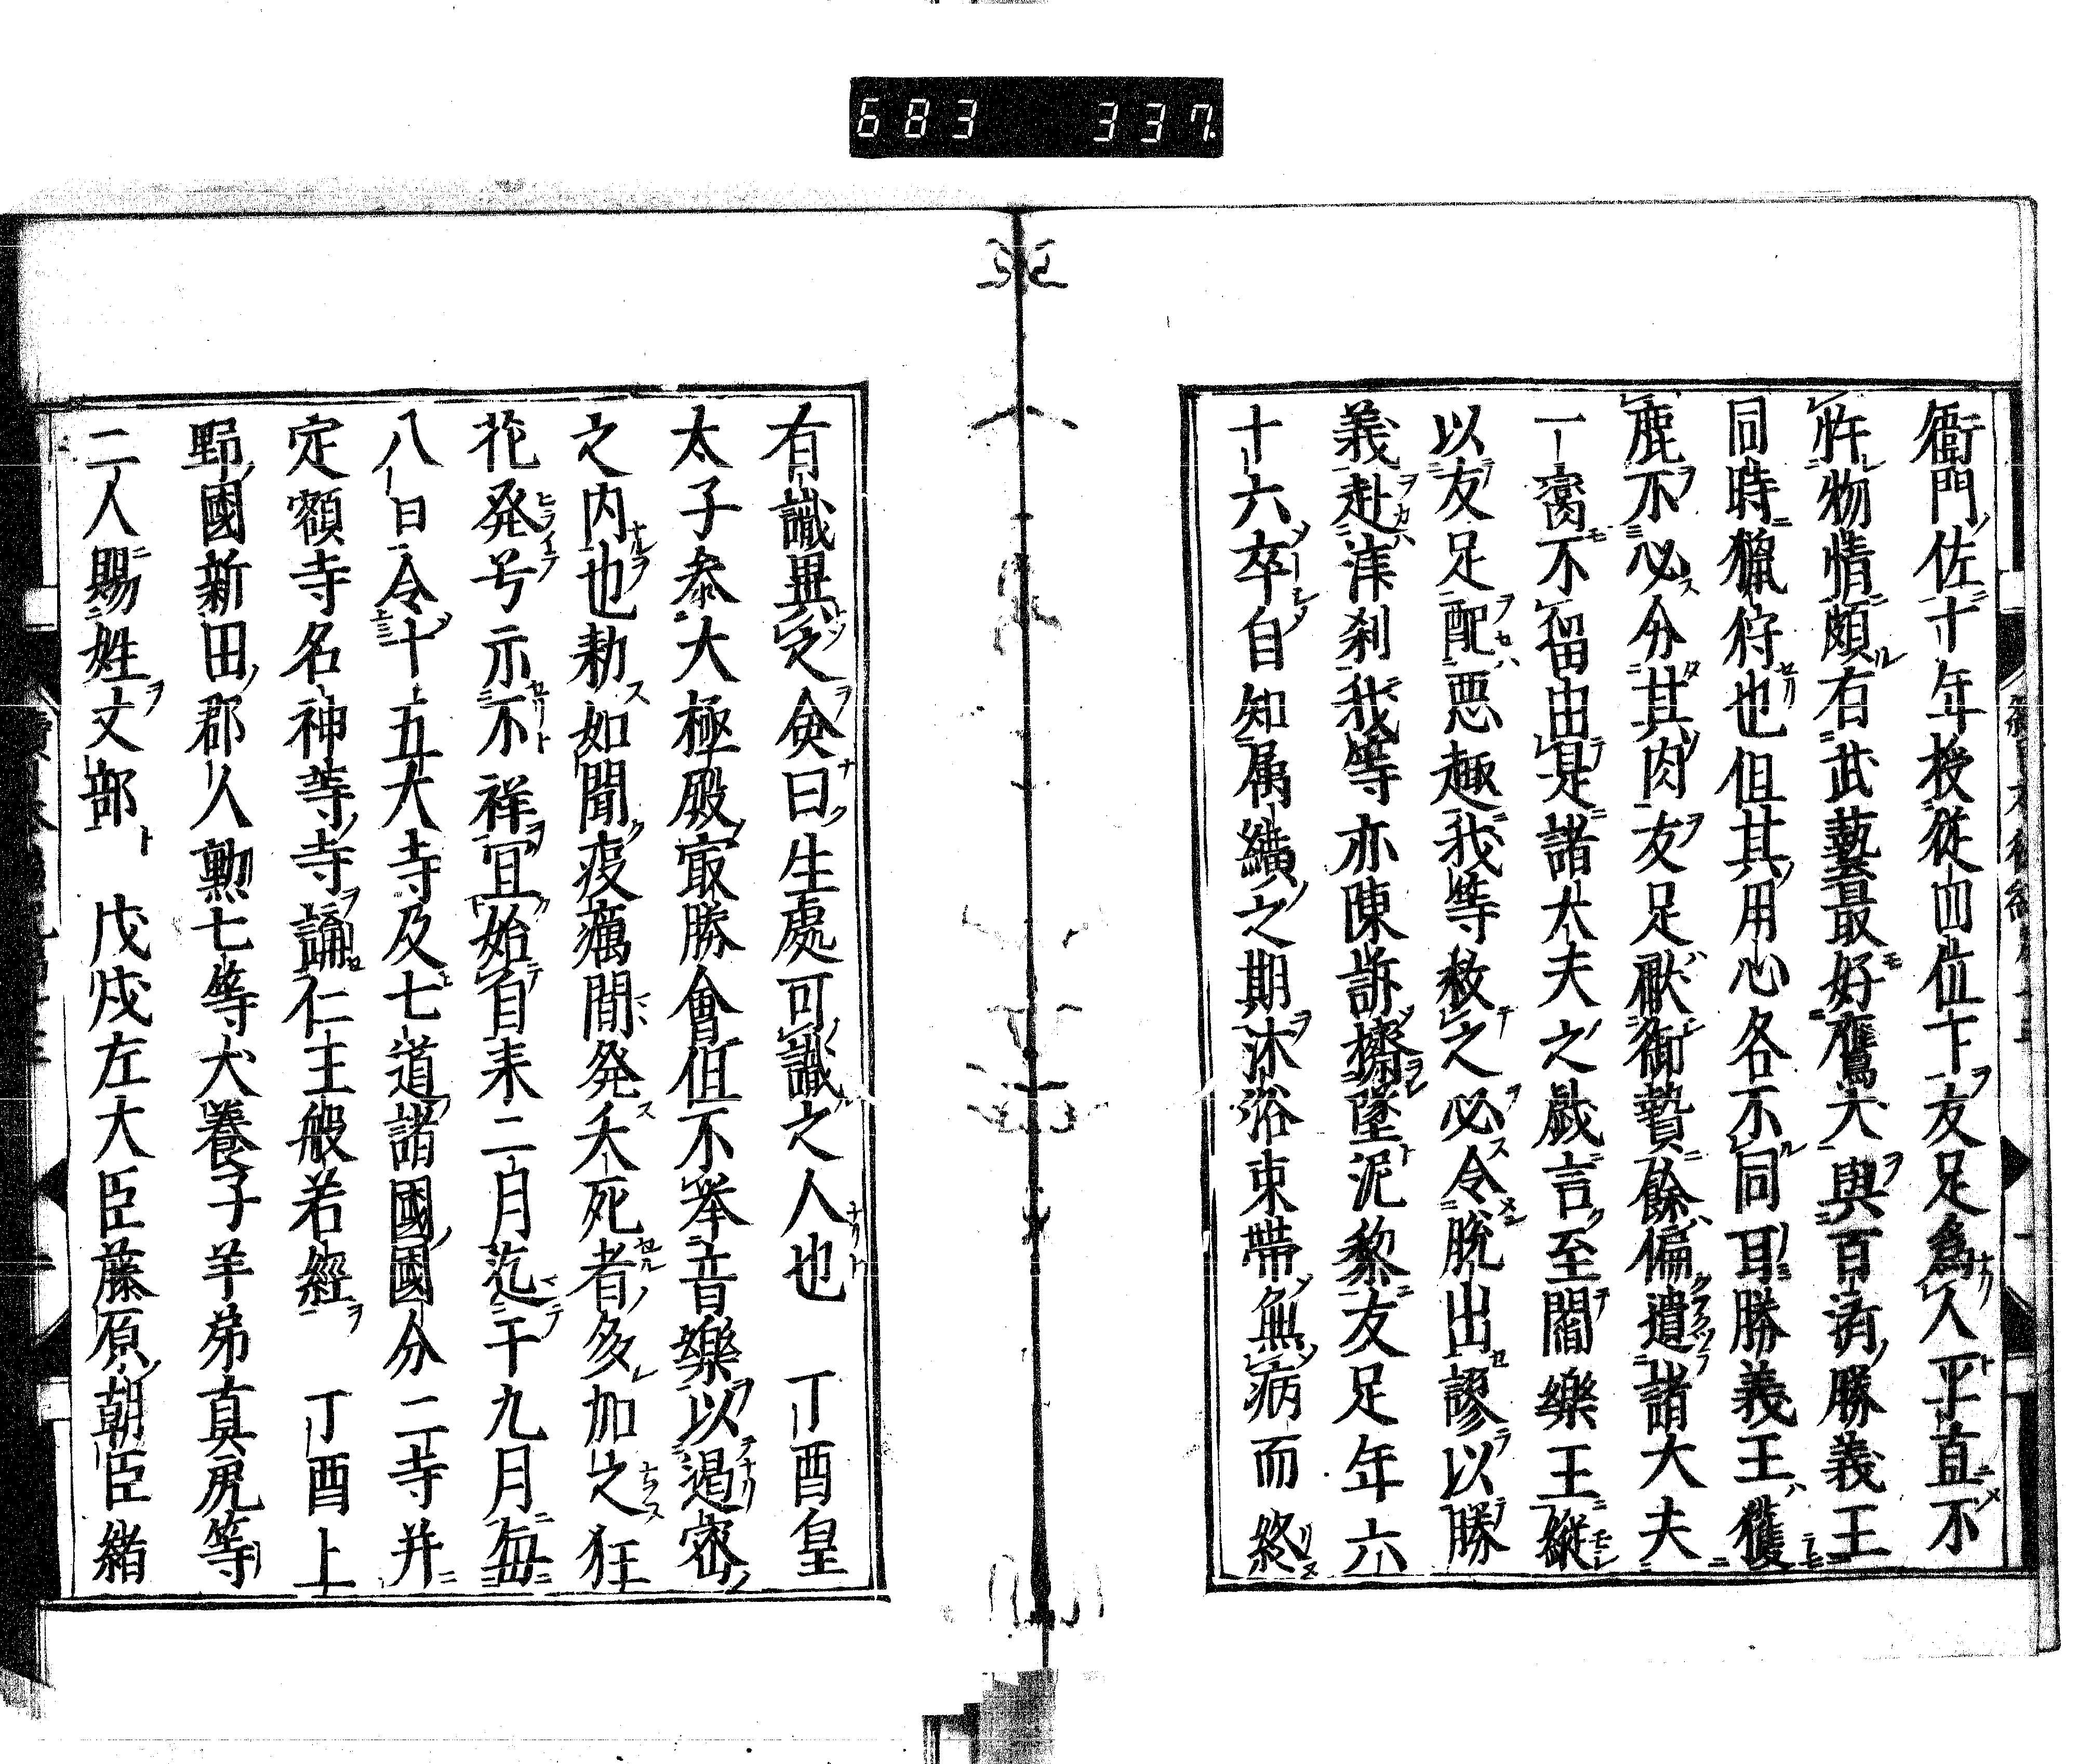 683 337
衞門佐十年授從四位下友足爲人平直不
忤物情頗有武藝最好鷹犬與百濟勝義王
同時獵狩也但其用心各不同耳勝義王獲
鹿不必分其肉友足獻御贄餘偏遺諸大夫
一臠不留由是諸大夫之戯言至閻樂王縱
以友足配悪趣我等救之必令脱出謬以勝
義赴淨刹我等亦陳訴擠墜泥黎友足年六
十六卒自知属纊之期沐浴束帶無病而終
有識異之僉曰生處可識之人也　丁酉皇
太子叅大極殿㝡勝會但不挙音樂以遏密
之内也勅如聞疫癘間発夭死者多加之狂
花発号示不祥宜始自来二月迄于九月毎
八日令十五大寺及七道諸國國分二寺并
定額寺名神等寺論仁王般若經　丁酉上
野國新田郡人勲七等犬養子羊弟真虎等
二人賜姓丈部　戊戌左大臣藤原朝臣緒